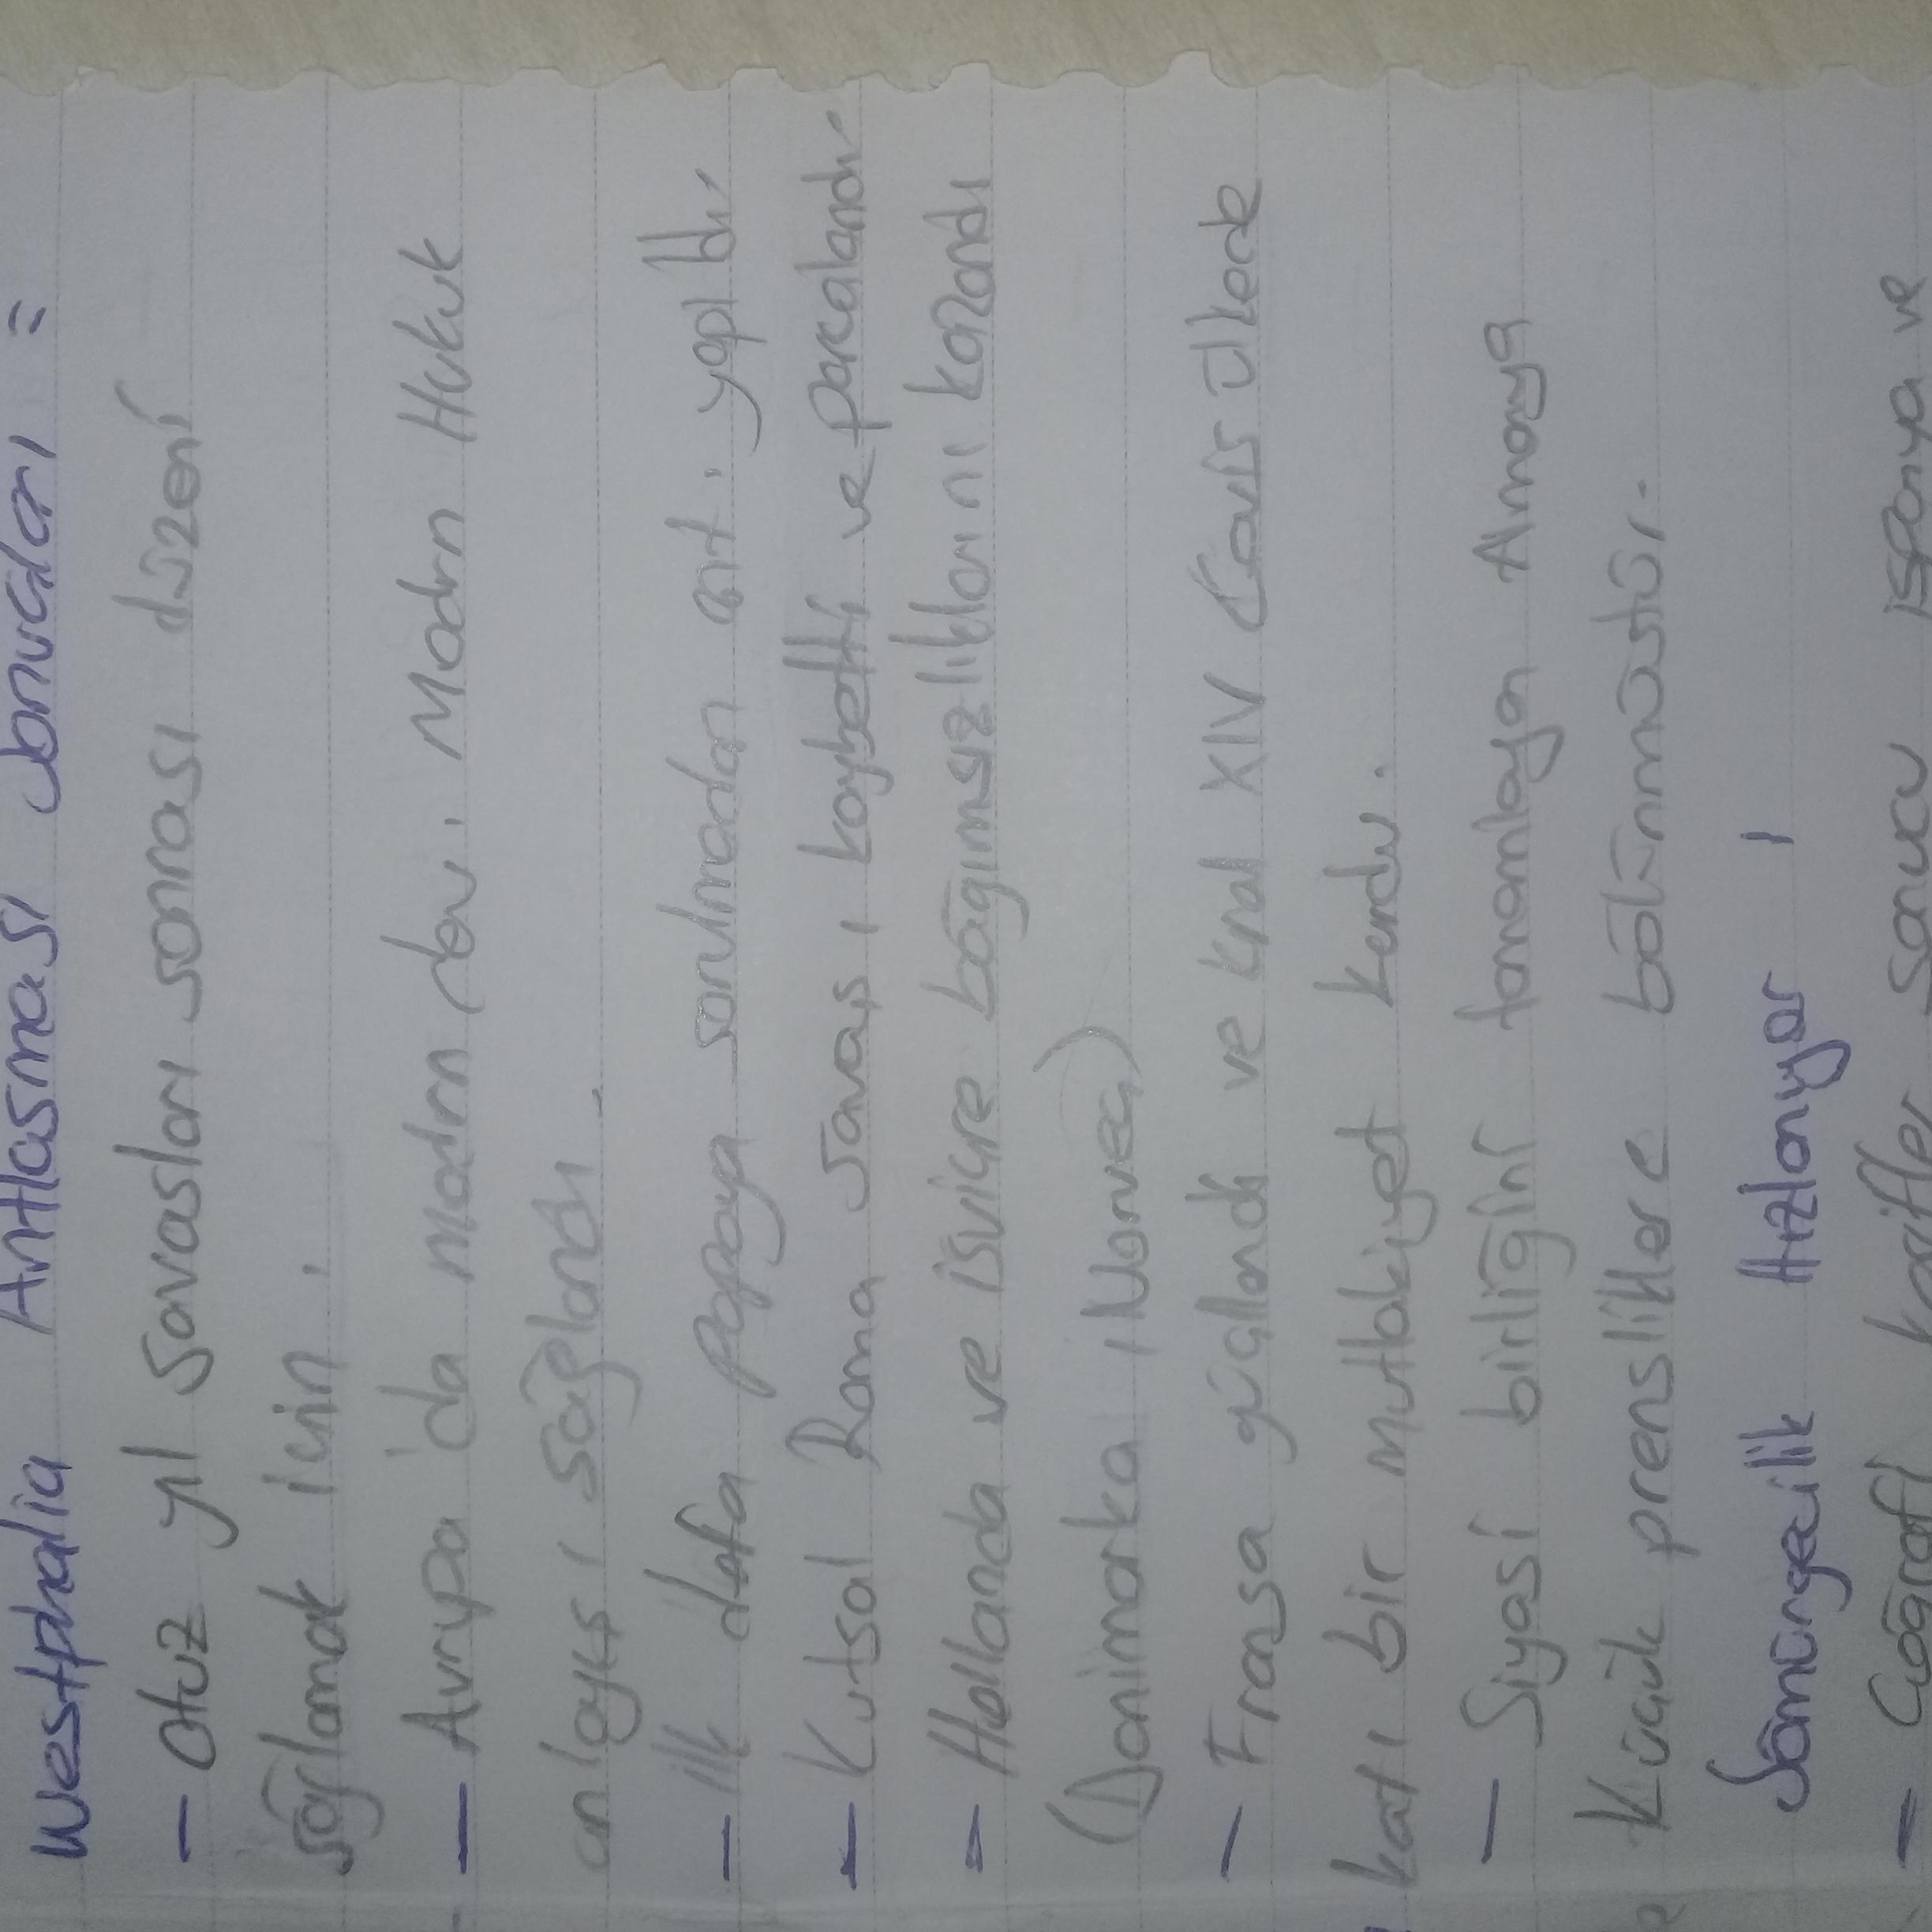 Westphalia Antlasması Sonuçları =
- Otuz yıl Savasları sonrası düzeni
sağlamak için.
- Avrupa'da modern dev. Modern Hukuk
anlayışı sağlandı.
- İlk defa Papaya sorulmadan ant. yapıldı.
- Kutsal Roma Savaşı kaybetti ve parcalandı
- Hollanda ve isviçre bağımsızlıklarını kazandı
(Danimarka, Norveç)
- Fransa güçlendi ve kral XIV Louis ülkede
katı bir mutlakiyet kurdu.
- Siyasi birliğini tamamlaya Almanya
Küçük prensliklere bölünmüstür.
Sömürgecilik Hızlanıyor
- Coğrafi kesifler sonucu ispanya ve